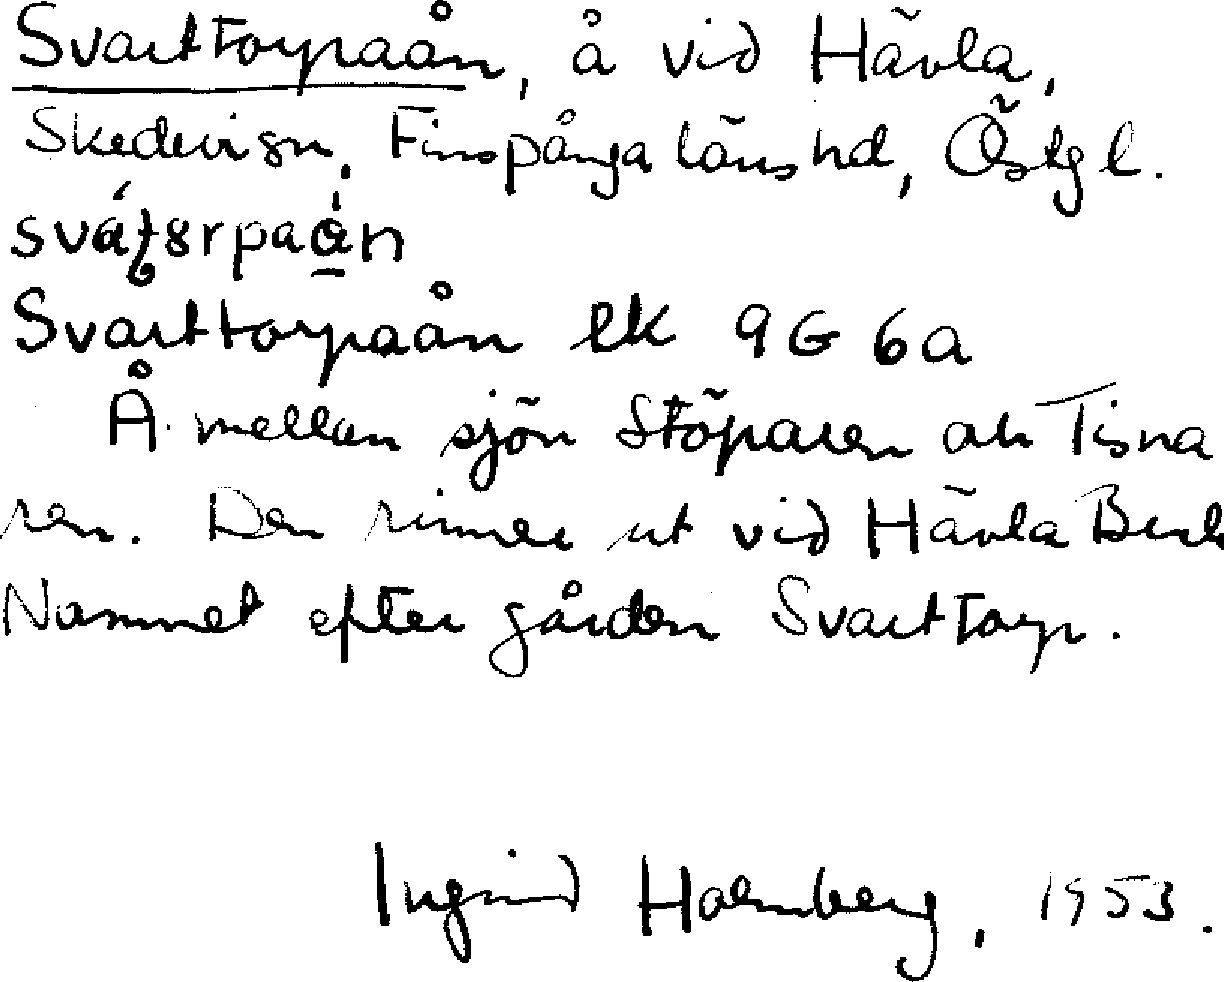 Svarttorpaån, å vid Hävla,
Skedevi sn, Finspånga läns hd, Östgl.
Svarttorpaån ek 9G 6a
Å mellan sjön Stöparen och Tisna
ren. Den rinner ut vid Hävla Bruk
Namnet efter gården Svarttorp.
Ingrid Holmberg, 1953.